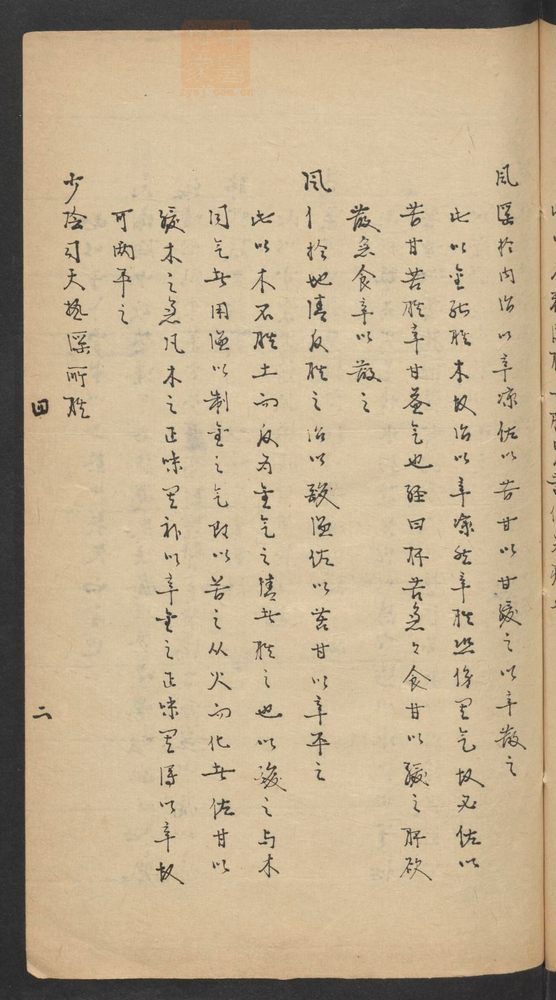 風淫於內治以辛凉佐以苦甘以甘緩之以辛散之
此以金能勝木故治以辛凉然辛勝恐傷其气故必佐以
苦甘苦勝辛甘益气也經曰肝苦急急食甘以緩之肝欲
散急食辛以散之
風行於地清反勝之治以酸溫佐以苦甘以辛平之
此以木不勝土而反為金气之清者勝之也以酸之与木
同气者用溫以制金之气取以苦之从火而化者佐甘以
緩木之急凡木之正味其补以辛金之正味其瀉以辛故
可两平之
少陰司天熱淫所勝
四
二